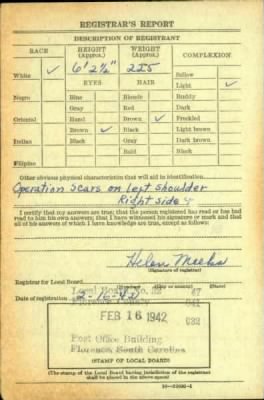 REGISTRAR'S REPORT
DESCRIPTION OF REGISTRANT
RACE HEIGHT (Approx.) WEIGHT (Approx.) COMPLEXION
White ✓ 6' 2½" 225 Sallow
EYES HAIR Light ✓
Negro Blue Blonde Ruddy
Gray Red Dark
Oriental Hazel Brown ✓ Freckled
Brown ✓ Black Light brown
Indian Black Gray Dark brown
Bald Black
Filipino
Other obvious physical characteristics that will aid in identification
Operation scars on left shoulder
Right side
I certify that my answers are true; that the person registered has read or has had
read to him his own answers; that I have witnessed his signature or mark and that
all of his answers of which I have knowledge are true, except as follows:
Helen
(Signature of registrar)
Registrar for Local Board
Local Board
(City or county) (State)
Date of registration 2-16-42
FEB 16 1942
Post Office Building
Florence, South Carolina
(STAMP OF LOCAL BOARD)
(The stamp of the Local Board having jurisdiction of the registrant
shall be placed in the above space)